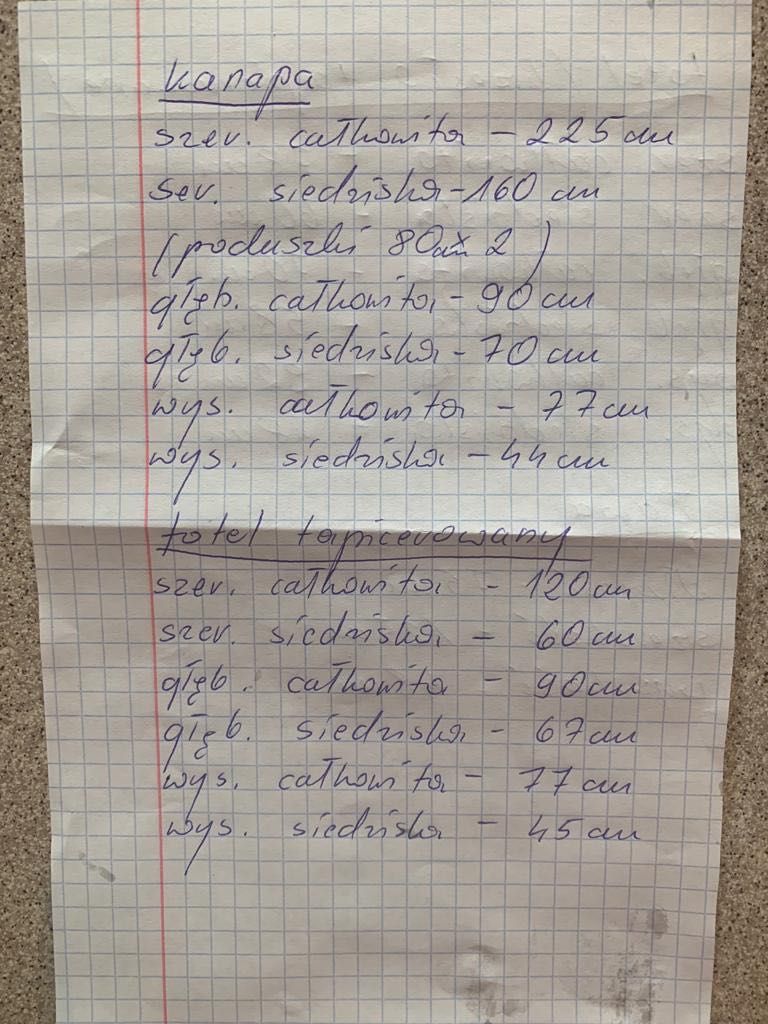 kanapa
szer. całkowita - 225 cm
ser. siedziska - 160 cm
(poduszki 80cm x 2)
głęb. całkowita - 90 cm
głęb. siedziska - 70 cm
wys. całkowita - 77 cm
wys. siedziska - 44 cm
fotel tapicerowany
szer. całkowita - 120 cm
szer. siedziska - 60 cm
głęb. całkowita - 90 cm
głęb. siedziska - 67 cm
wys. całkowita - 77 cm
wys. siedziska - 45 cm